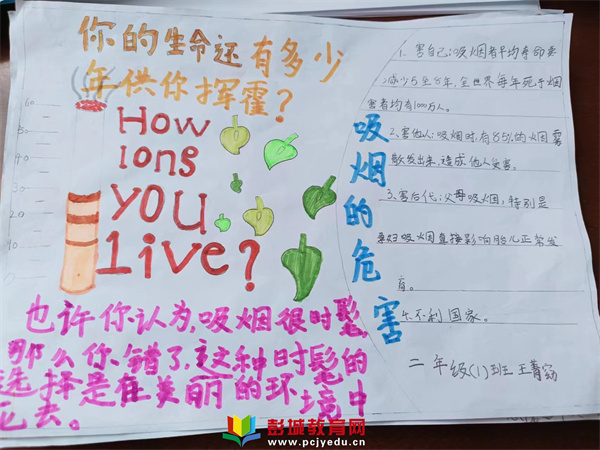 你的生命还有多少
年供你挥霍？
60
50
40
30
20
How
long
you
live?
也许你认为，吸烟很时髦，
那么你错了，这种时髦的
选择是在美丽的环境中
死去。
吸烟的危害
1. 害自己：吸烟者平均寿命要
减少5至8年，全世界每年死于烟
害者均有1000万人。
2、害他人：吸烟时，有85%的烟雾
散发出来，造成他人受害。
3、害后代：父母吸烟，特别是
孕妇吸烟直接影响胎儿正常发
育。
4.不利国家。
二年级(1)班 王菁
彭城教育网
www.pcjyedu.cn